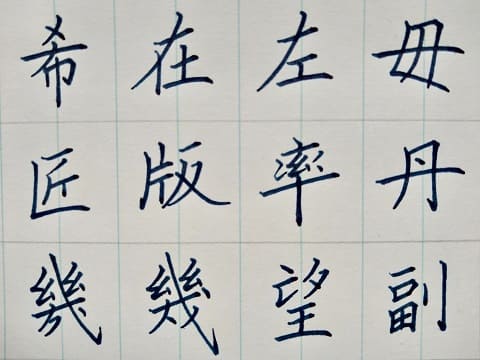 希在左毋
匠版率丹
幾幾望副